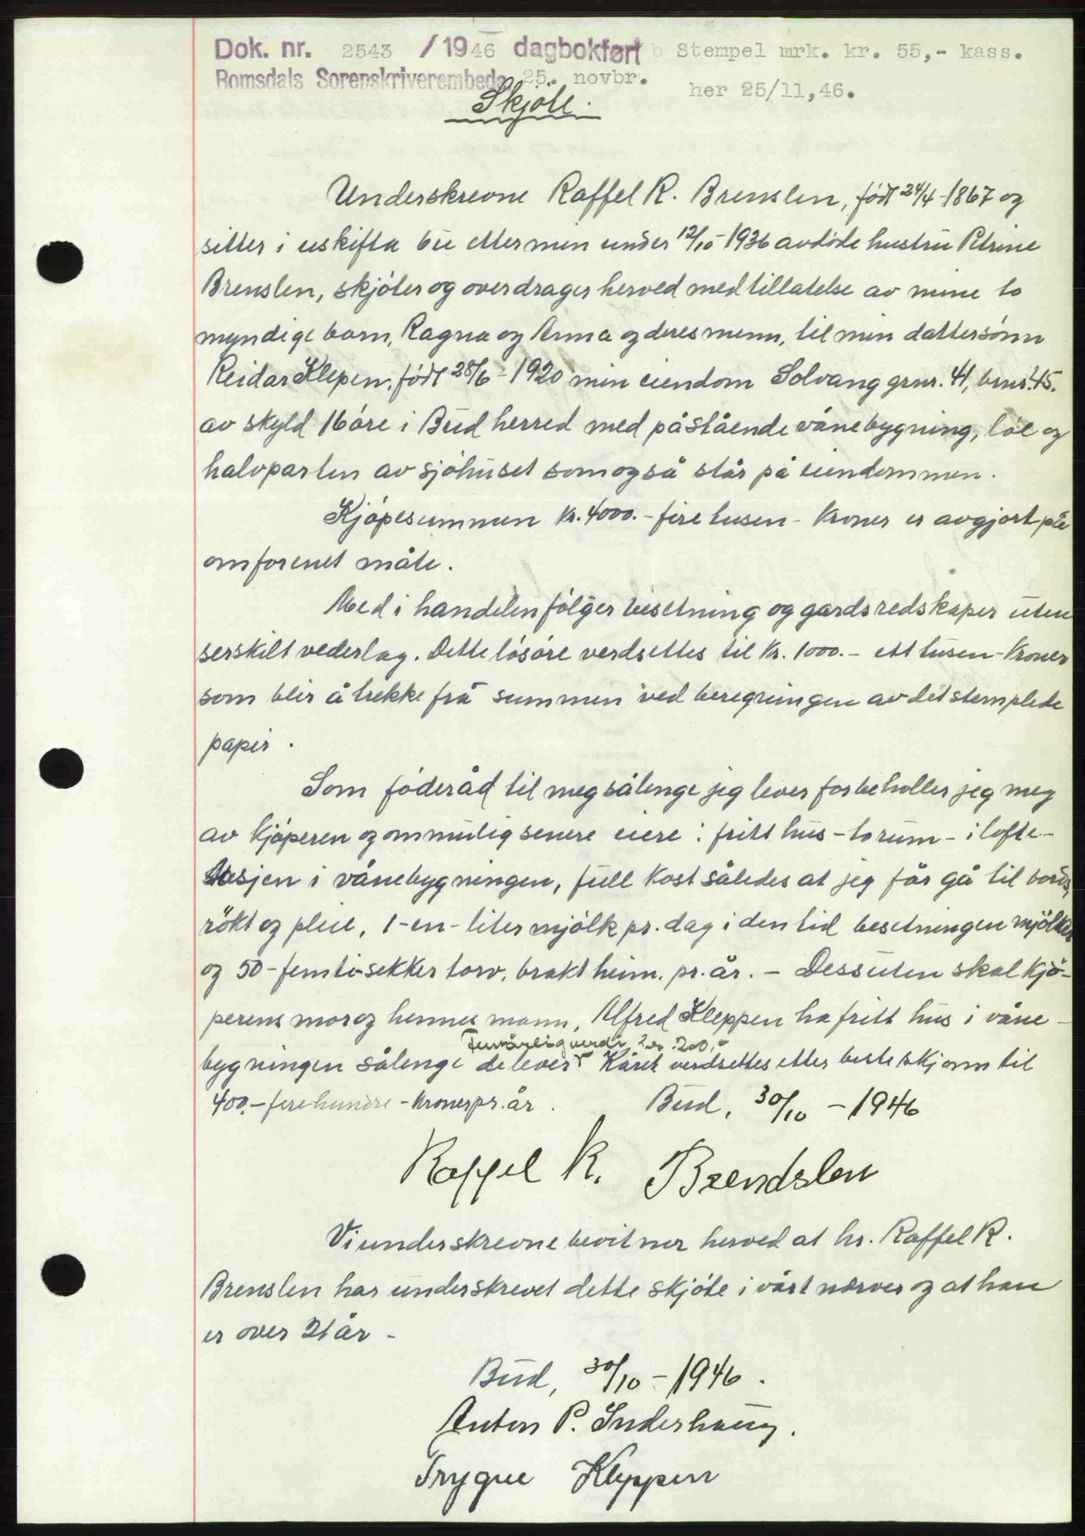 Dok. nr. 2543 / 1946 dagbokført b Stempel mrk. kr. 55,- kass.
Romsdals Sorenskriverembede 25. novbr. her 25/11,46.
Skjöte.
Underskrevne Raffel R. Brenslen, født 24/4-1867 og
sitter i uskifta bu etter min under 12/10-1936 avdöde hustru Petrine
Brenslen, skjöter og overdrager herved med tillatelse av mine to
myndige barn, Ragna og Anna og deres menn, til min dattersönn
Reidar Klepen, födt 28/6-1920 min eiendom Solvang grnr. 41, brnr. 45.
av skyld 16 öre i Bud herred med påstående vånebygning, löe og
halvparten av sjöhuset som også står på eiendommen.
Kjöpesummen kr. 4000.- fire tusen - kroner er avgjort på
omforenet måte.
Med i handelen fölger besetning og gardsredskaper uten
serskilt vederlag. Dette lösöre verdsettes til kr. 1000.- ett tusen - kroner
som blir å trekke frå summen ved beregningen av det stemplede
papir.
Som föderåd til meg sålenge jeg lever forbeholler jeg meg
av kjöperen og ommulig senere eiere: fritt hus - to rum - i lofte-
tasjen i vånebygningen, full kost således at jeg får gå til bords,
rökt og pleie, 1-en-liter mjölk pr. dag i den tid besetningen mjölker
og 50-femti-sekker torv, brakt heim, pr. år. - Dessuten skal kjö-
perens mor og hennes mann, Alfred Kleppen ha fritt hus i våne-
Femårlig verdi kr. 200,-
bygningen sålenge de lever. Kåret verdsettes etter beste skjønn til
400.- fire hundre - kroner pr. år. Bud, 30/10 - 1946
Raffel R. Brendslen
Vi underskrevne bevitner herved at hr. Raffel R.
Brenslen har underskrevet dette skjöte i vårt nærver og at han
er over 21 år -
Bud, 30/10 - 1946.
Anton P. Inderhaug.
Trygve Kleppen